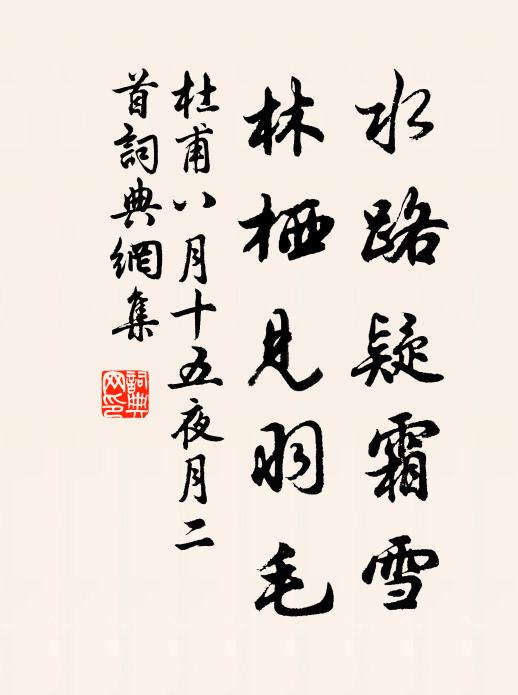 水路疑霜雪
林栖見羽毛
杜甫八月十五夜月二
首詞典網集
詞典網印